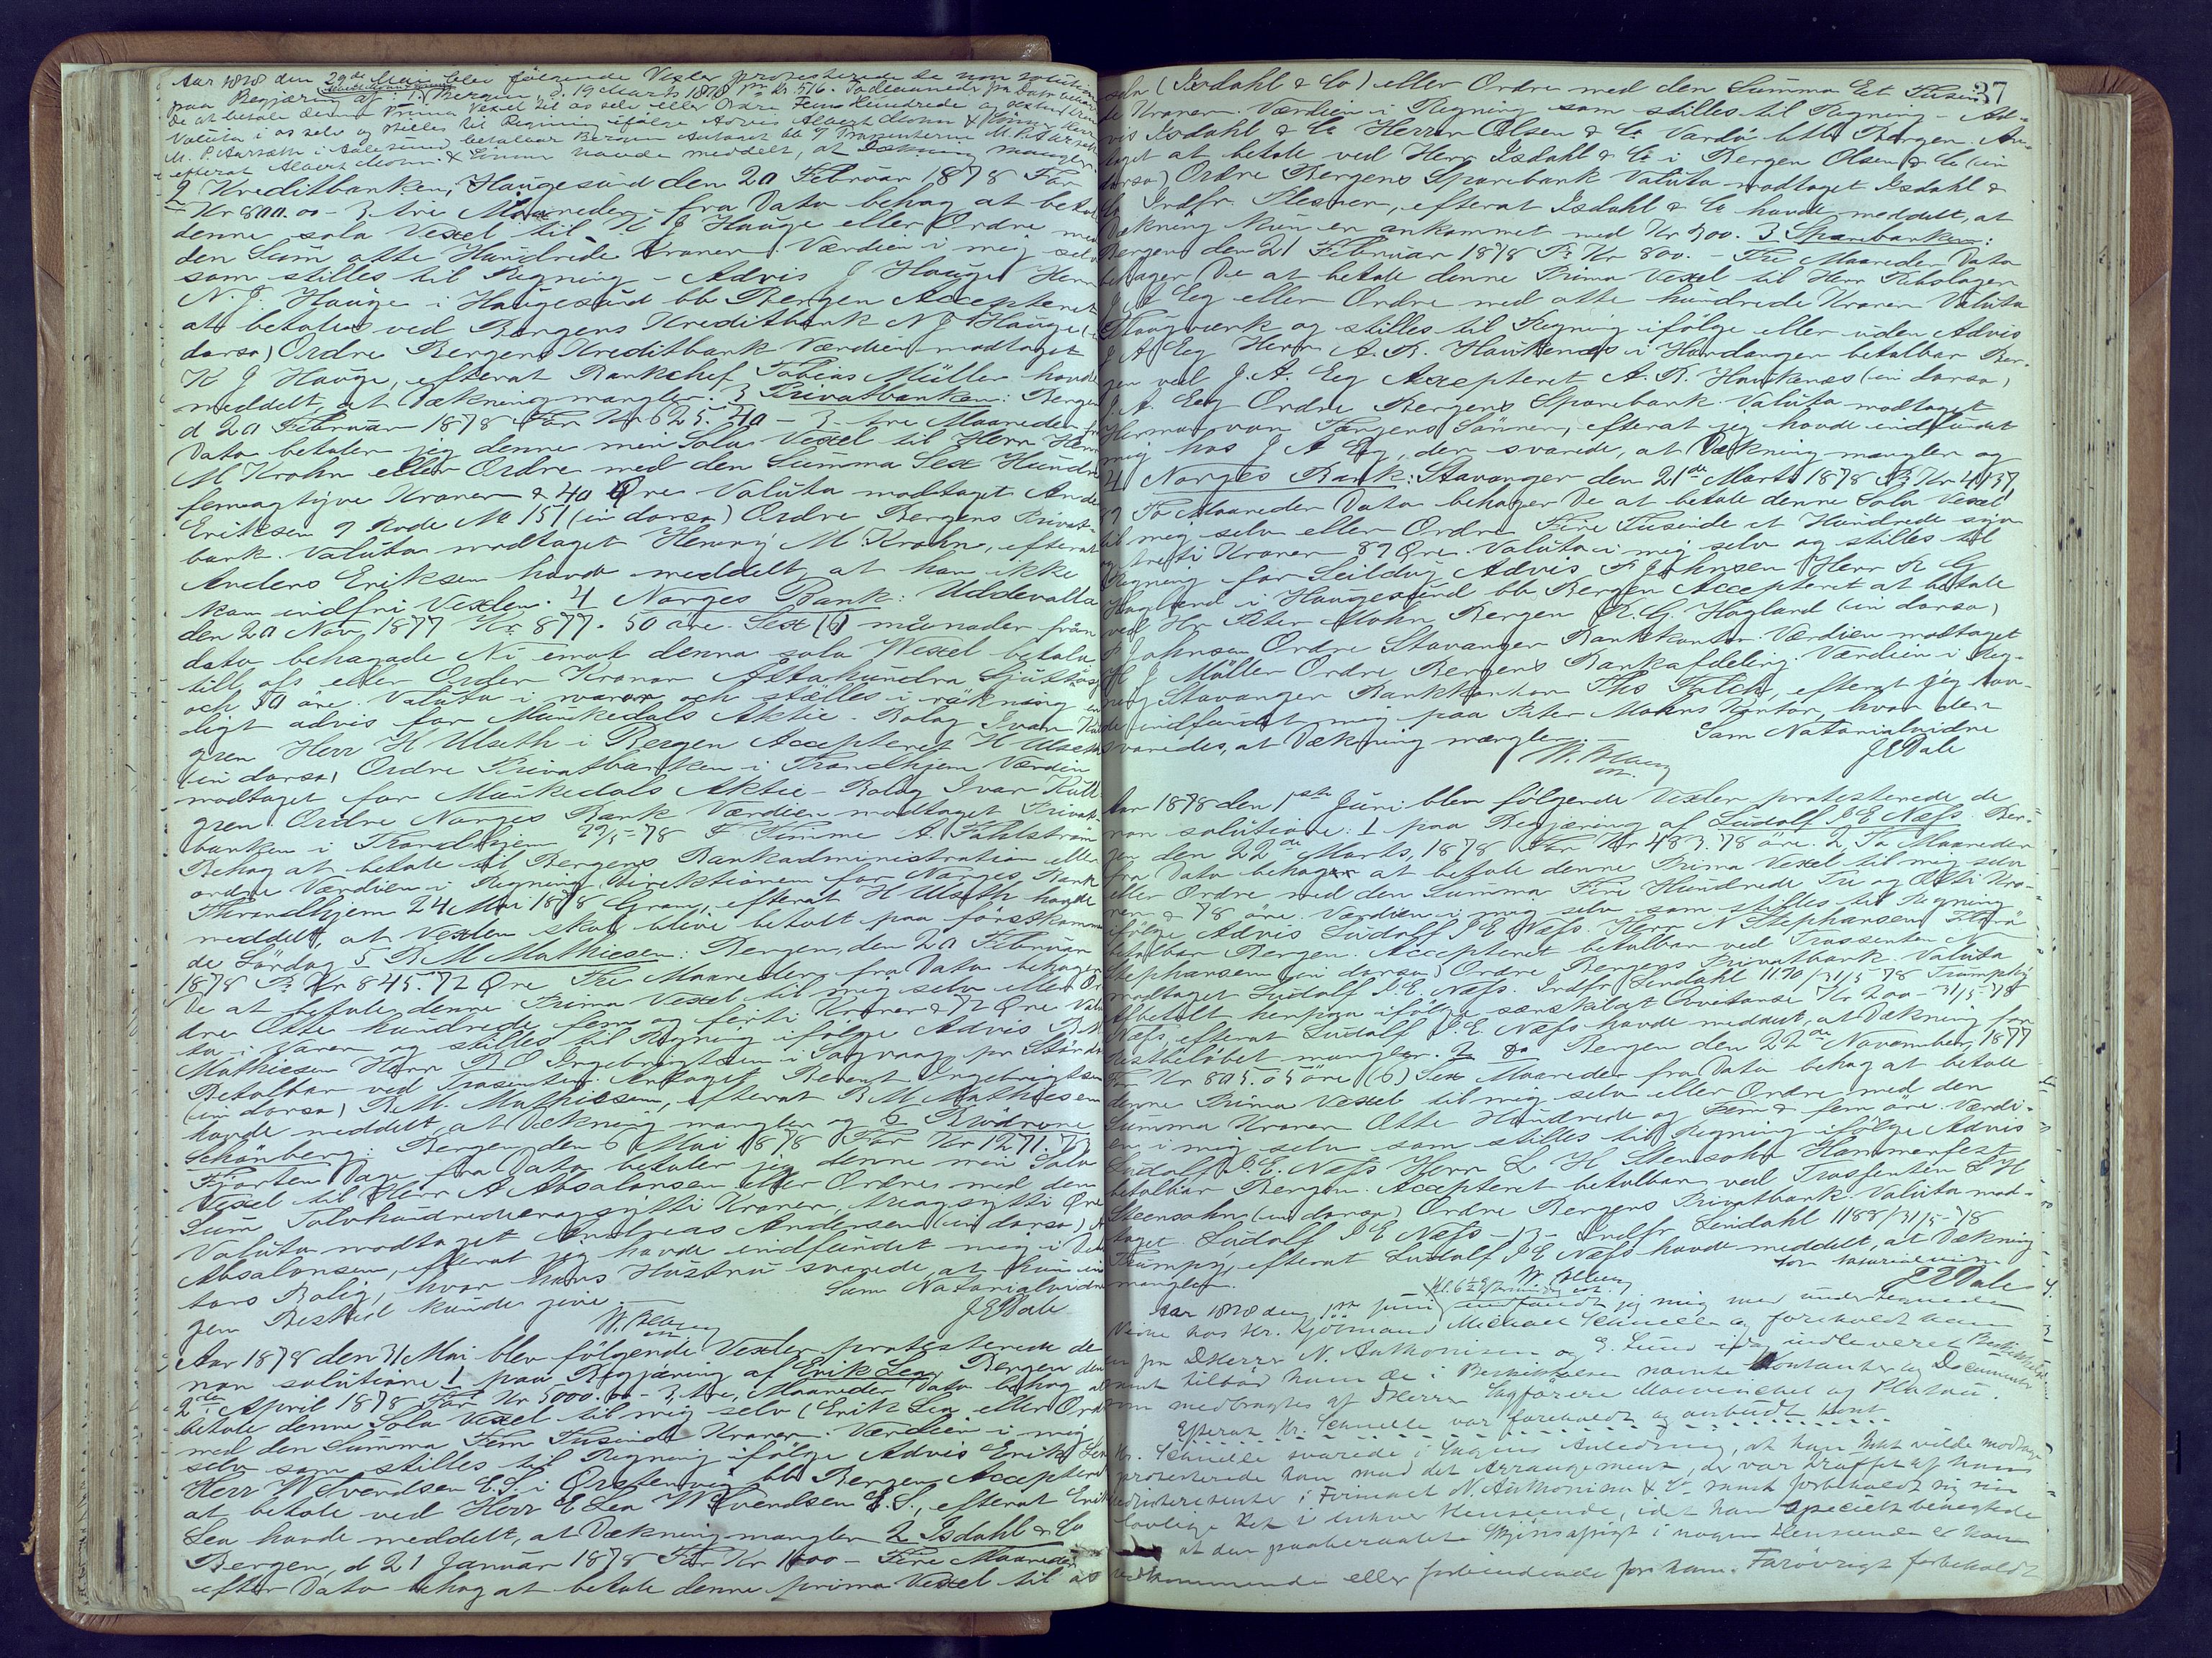 Aar 1878 den 29de Mai blev følgende Vexler protesterede de non solutione
paa Begjæring af: 1, Bergen, d. 19 Marts 1878 pr Kr 516. To Maaneder fra Dato behager
De at betale denne Prima Vexel til os selv eller Ordre Fem Hundrede og sexten Kroner
Valuta i os selv og stilles til Regning ifølge Advis Albert Mohn & Herr
M. P. Aarsæth i Aalesund betalbar Bergen Antaget M. P. Aarsæth
efterat Albert Mohn & havde meddelt, at Dækning mangler.
2 Kreditbanken, Haugesund den 20 Februar 1878 For
Kr 800.00 - 3 tre Maaneder fra Dato behag at betale
denne sola Vexel til K J Hauge eller Ordre med
den Sum otte Hundrede Kroner. Værdien i mig selv
som stilles til Regning - Advis J Hauge Herr
N. J. Hauge i Haugesund bb Bergen Accepteret
at betales ved Bergens Kreditbank N J Hauge (in
dorso) Ordre Bergens Kreditbank Værdien modtaget
K J Hauge, efterat Bankchef Tobias Müller havde
meddelt, at Dækning mangler. 3 Privatbanken: Bergen
d 20 Februar 1878 For Kr 625.40 - 3 tre Maaneder fra
Dato betaler jeg denne min Sola Vexel til Herr Henry
M Krohn eller Ordre med den Summa Sex Hundrede
femogtyve Kroner & 40 Øre Valuta modtaget Anders
Eriksen 9 Rode No 151 (in dorso) Ordre Bergens Privat-
bank. Valuta modtaget Henry M Krohn, efterat
Anders Eriksen havde meddelt, at han ikke
kan indfri Vexlen. 4 Norges Bank: Uddevalla
den 20 Nov, 1877 Kr 877. 50 öre. Sex (6) månader från
dato behagade Ni emot denna sola Wexel betala
till oss eller Order Kronor Åttahundra Sjuttiosju
och 50 öre. Valuta i varor och ställes i räkning en-
ligt advis for Munkedals Aktie-Bolag Ivar Kull
gren Herr H Ulseth i Bergen Accepteret H Ulseth
(in dorso) Ordre Privatbanken i Trondhjem Værdien
modtaget for Munkedals Aktie-Bolag Ivar Kull
gren. Ordre Norges Bank Værdien modtaget Privat-
banken i Trondhjem 22/5-78 F. Finne A. Fahlstrøm
Behag at betale til Bergens Bankadministration eller
ordre Værdien i Regning Direktionen for Norges Bank
Throndhjem 24 Mai 1878 Gram, efterat H Ulseth havde
meddelt, at Vexlen skal blive betalt paa førstkommen
de Lørdag 5 B M Mathiesen: Bergen, den 20 Februar
1878 Pr Kr 845.72 Øre Tre Maaneder fra Dato behager
De at betale denne Prima Vexel til mig selv eller Or-
dre Otte hundrede fem og førti Kroner & 72 Øre Valu
ta i Varer og stilles til Regning ifølge Advis B. M
Mathiesen Herr B O Ingebrigtsen i Sagvaag pr Størdø
Betalbar ved Trasenten. Antaget Berent Ingebrigtsen
(in dorso) B. M. Mathiesen, efterat B M Mathiesen
havde meddelt, at Dækning mangler og 6 Brødrene
Schönberg: Bergen, den 6 Mai 1878 For Kr 1271.73
Fjorten Dage fra Dato betaler jeg denne min Sola
Vexel til Herr A Absalonsen eller Ordre med den
Sum Tolvhundredeenogsytti Kroner, treogsytti Øre
Valuta modtaget Andreas Andersen (in dorso) A
Absalonsen, efterat jeg havde indfundet mig i Debi
tors Bolig, hvor hans Hustru svarede, at hun in
gen Besked kunde give.
Som Notarialvidne
J E Dale
Aar 1878 den 31 Mai blev følgende Vexler protesterede de
non solutione 1 paa Begjæring af Erik Lea, Bergen den
2den April 1878 For Kr 5000.00 - 3, tre, Maaneder Dato behag at
betale denne Sola Vexel til mig selv (Erik Lea eller Ordre
med den Summa Fem Tusinde Kroner. Værdien i mig
selv som stilles til Regning ifølge Advis Erik Lea
Herr W Svendsen E. S. i bb Bergen Accepteret
at betale ved Herr E Lea W Svendsen E. S., efterat Erik
Lea havde meddelt, at Dækning mangler 2 Isdahl & Co
Bergen, d 21 Januar 1878 For Kr 1000 - Fire Maaneder
efter Dato behag at betale denne prima Vexel til os
37
selv (Isdahl & Co) eller Ordre med den Summa Et Tusin-
de Kroner. Værdien i Regning som stilles til Regning - Ad-
vis Isdahl & Co Herrer Olsen & Co Vardø bbr Bergen An-
taget at betale ved Herr Isdahl & Co i Bergen Olsen & Co (in
dorso) Ordre Bergens Sparebank Valuta modtaget Isdahl &
Co Indfr. Flesner, efterat Isdahl & Co havde meddelt, at
Dækning kun er ankommet med Kr 500. 3 Sparebanken:
Bergen den 21 Februar 1878 Pr Kr 800. - Tre Maaneder Dato
behager De at betale denne Prima Vexel til Herr Rebslager
J. A. Eeg eller Ordre med otte hundrede Kroner Valuta
Taugværk og stilles til Regning ifølge eller uden Advis
J A Eeg Herr A. R. Haukenæs i Hardanger betalbar Ber-
gen ved J. A. Eeg Accepteret A. R. Haukenæs (in dorso)
J. A. Eeg Ordre Bergens Sparebank. Valuta modtaget
Herman von Tangens Sønner, efterat jeg havde indfundet
mig hos J A Eeg, der svarede, at Dækning mangler og
4 Norges Bank: Stavanger den 21de Marts 1878 Pr Kr 4137,
87 To Maaneder Dato behager De at betale denne Sola Vexel
til mig selv eller Ordre Fire Tusinde et Hundrede syv
og treti Kroner 87 Øre. Valuta i mig selv og stilles til
Regning for Seildug Advis P Johnsen Herr R G
Hagland i Haugesund bb Bergen Accepteret at betale
ved Hr Peter Mohn Bergen R. G. Hagland (in dorso)
P Johnsen Ordre Stavanger Bankkontor. Værdien modtaget
H J Müller Ordre Bergens Bankafdeling. Værdien i Reg-
ning Stavanger Bankkontor Ths Falck, efterat jeg hav-
de indfundet mig paa Peter Mohns Kontor, hvor der
svaredes, at Dækning mangler.
Som Notarialvidne
J E Dale
Aar 1878 den 1ste Juni blev følgende Vexler protesterede de
non solutione: 1 paa Begjæring af Ludolf J. E. Næss. Ber-
gen den 22de Marts, 1878 For Kr 483.78 øre. 2, To Maaneder
fra Dato behager at betale denne Prima Vexel til mig selv
eller Ordre med den Summa Fire Hundrede Tre og Otti Kro-
ner & 78 øre. Værdien i mig selv som stilles til Regning
ifølge Advis Ludolf J E Næss. Herr N Stephansen Florø
betalbar Bergen. Accepteret betalbar ved Trassenten N
Stephansen (in dorso) Ordre Bergens Privatbank. Valuta
modtaget Ludolf J. E. Næss. Indfr Lindahl 1170/31/5 78 Trumpy
Afbetalt herpaa ifølge særskilt Qvittanse Kr 200 - 31/5-78
Næss, efterat Ludolf J. E. Næss havde meddelt, at Dækning for
Restbeløbet mangler. 2 Do Bergen den 22de November, 1877
For Kr 805.05 øre (6) Sex Maaneder fra Dato behag at betale
denne Prima Vexel til mig selv eller Ordre med den
Summa Kroner Otte Hundrede og Fem & fem øre. Værdi-
en i mig selv som stilles til Regning ifølge Advis
Ludolf J. E. Næss Herr L H Steensohn Hammerfest
betalbar Bergen. Accepteret betalbar ved Trassenten L H
Steensohn (in dorso) Ordre Bergens Privatbank. Valuta mod-
taget. Ludolf J E Næss - 13 - Indfr Lindahl 1188/31/5-78
Trumpy, efterat Ludolf J E Næss havde meddelt, at Dækning
mangler.
Som Notarialvidne
J E Dale
Aar 1878 den 1ste Juni indfandt jeg mig med undertegnede
Vidne hos Hr. Kjøbmand Michael Schnelle og foreholdt ham
en pr DHerrer N. Anthonisen og E. Lund idag indleveret Beskikkelse
samt tilbød ham de i Beskikkelsen nævnte Kontanter og Documenter
som medbragtes af DHerrer Sagførere og Platou.
Efterat Hr. Schnelle var foreholdt og anbudt samt
Hr. Schnelle svarede i Sagens Anledning, at han intet vilde modtage
protesterede han mod det Arrangement, der var truffet af hans
Medinteressenter i Firmaet N. Anthonisen & Co samt forbeholdt sig sin
lovlige Ret i enhver Henseende, idet han specielt benegtede
at den paaberaabte i nogen Henseende er ham
vedkommende eller forbindende for ham. Forøvrigt forbeholdt